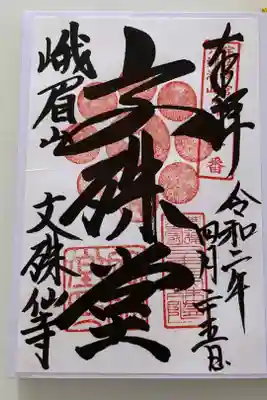 奉拝
令和二年
四月二十五日
文殊堂
峨眉山
文殊仙寺